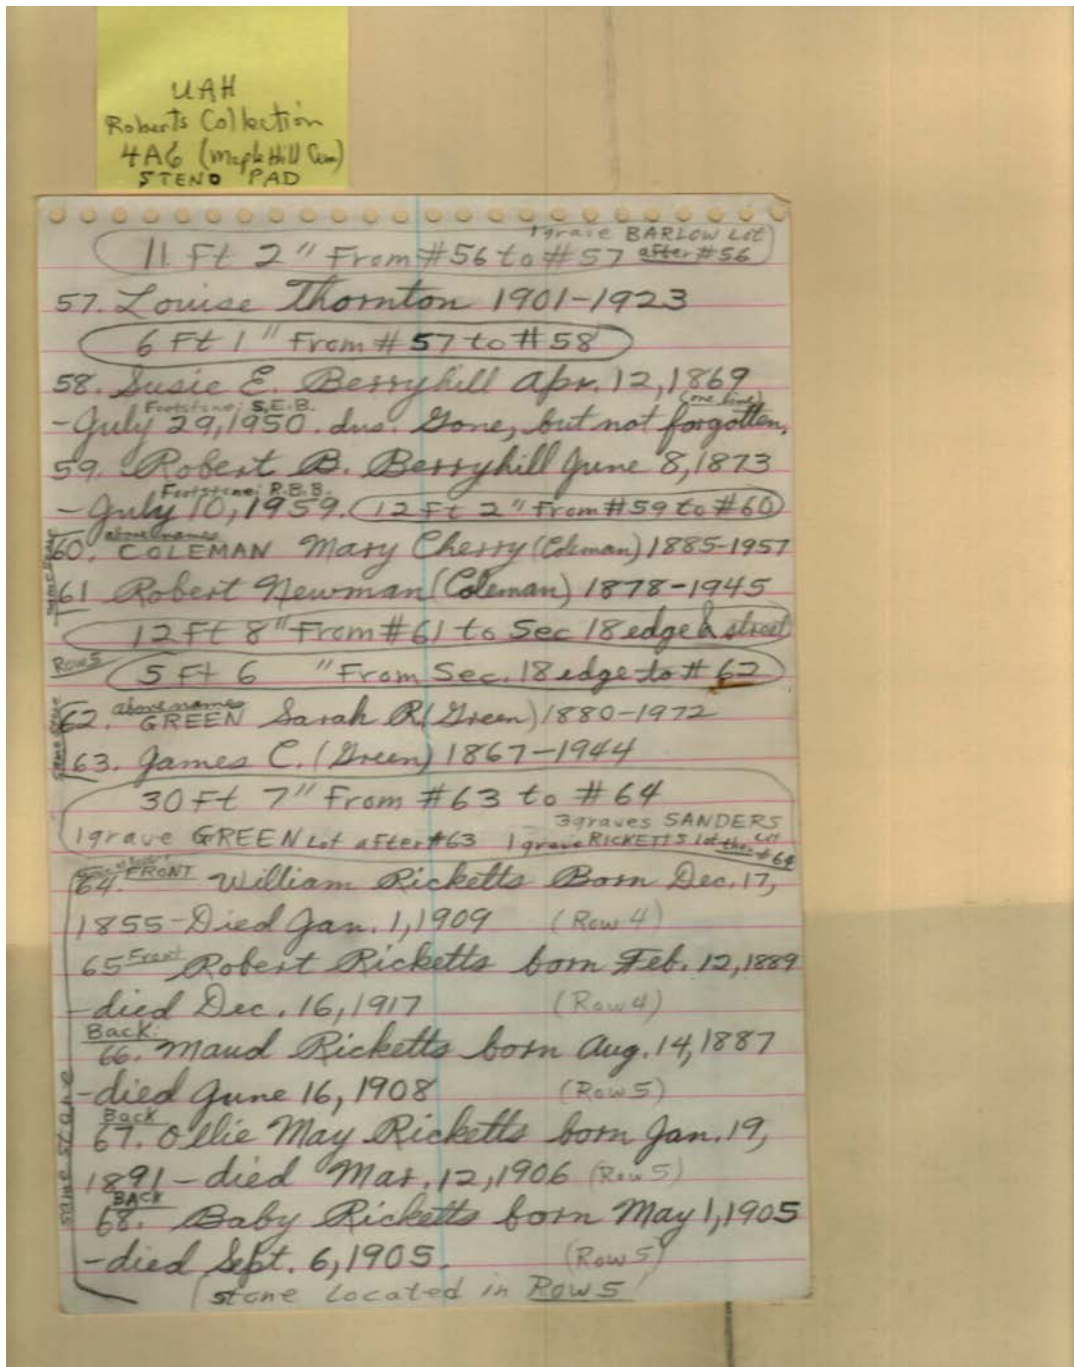 UAH
Roberts Collection
4A6 (Maple Hill Cem)
STENO PAD
1 grave BARLOW Lot
11 Ft 2" From #56 to #57 after #56
57. Louise Thornton 1901-1923
6 Ft 1" From #57 to #58
58. Susie E. Berryhill Apr. 12, 1869
Footstone: S.E.B. (one line)
-July 29, 1950. ins: Gone, but not forgotten.
59. Robert B. Berryhill June 8, 1873
Footstone: R.B.B.
-July 10, 1959. 12 Ft 2" From #59 to #60
same stone
above names
60. COLEMAN Mary Cherry (Coleman) 1885-1957
61 Robert Newman (Coleman) 1878-1945
12 Ft 8" From #61 to Sec 18 edge & street
Row 5
5 Ft 6 "From Sec. 18 edge to #62
same stone
above names
62. GREEN Sarah R (Green) 1880-1972
63. James C. (Green) 1867-1944
30 Ft 7" From #63 to #64
3 graves SANDERS Lot
1 grave GREEN Lot after #63 1 grave RICKETTS lot then #64
64. FRONT William Ricketts Born Dec. 17,
1855-Died Jan. 1, 1909 (Row 4)
65 Front Robert Ricketts born Feb. 12, 1889
-died Dec. 16, 1917 (Row 4)
Back:
66. Maud Ricketts born Aug. 14, 1887
-died June 16, 1908 (Row 5)
Back
67. Ollie May Ricketts born Jan. 19,
1891-died Mar. 12, 1906 (Row 5)
same stone
BACK
68. Baby Ricketts born May 1, 1905
-died Sept. 6, 1905. (Row 5)
stone located in Row 5